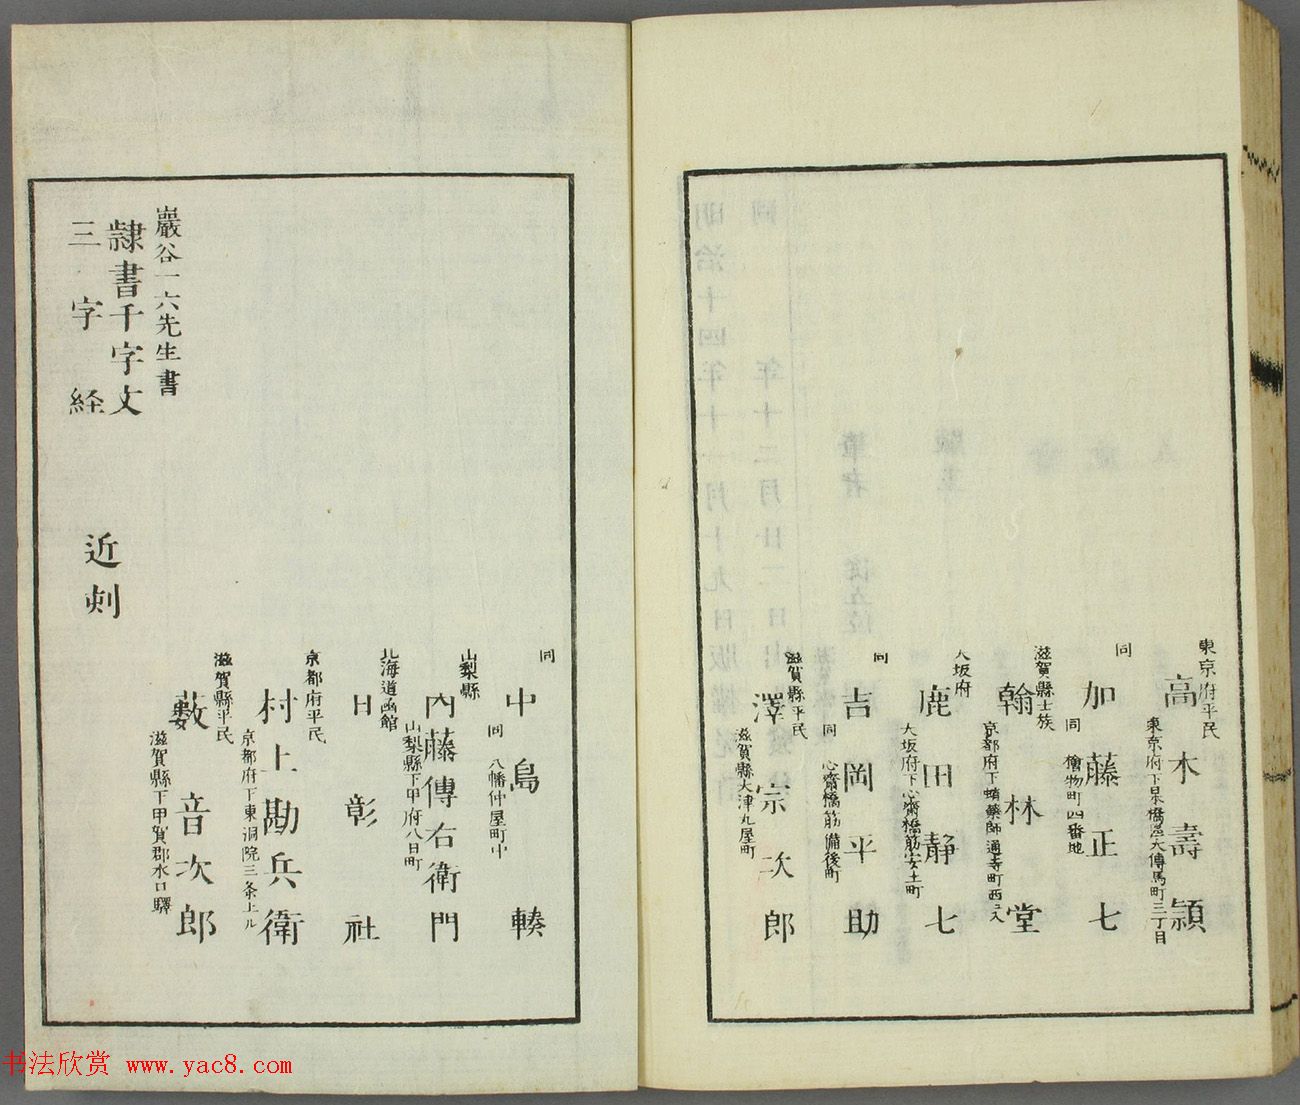 東京府平民
高木壽頴
東京府下日本橋區大傳馬町三丁目
同
加藤正七
同 檜物町四番地
滋賀縣士族
翰林堂
京都府下蛸藥師通寺町西ニ入
大坂府
鹿田静七
大坂府下心齋橋筋安土町
同
吉岡平助
同 心齋橋筋備後町
滋賀縣平民
澤宗次郎
滋賀縣大津丸屋町
同
中島
同 八幡仲屋町中
山梨縣
内藤傳右衛門
山梨縣下甲府八日町
北海道函館
日彰社
京都府平民
村上勘兵衛
京都府下東洞院三条上ル
滋賀縣平民
藪音次郎
滋賀縣下甲賀郡水口驛
巖谷一六先生書
隸書千字文
三字経
近刺
书法欣赏 www.yac8.com